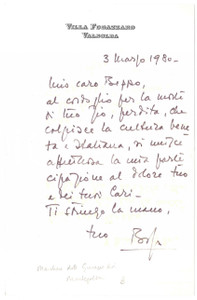 VILLA FOGAZZARO
VALSOLDA
3 Marzo 1980 -
Mio caro Beppo,
al cordoglio per la morte
di tuo zio, perdita, che
colpisce la cultura vene
ta e italiana, si unisce
affettuosa la mia parte
cipazione al dolore tuo
e dei tuoi Cari -
Ti stringo la mano,
tuo